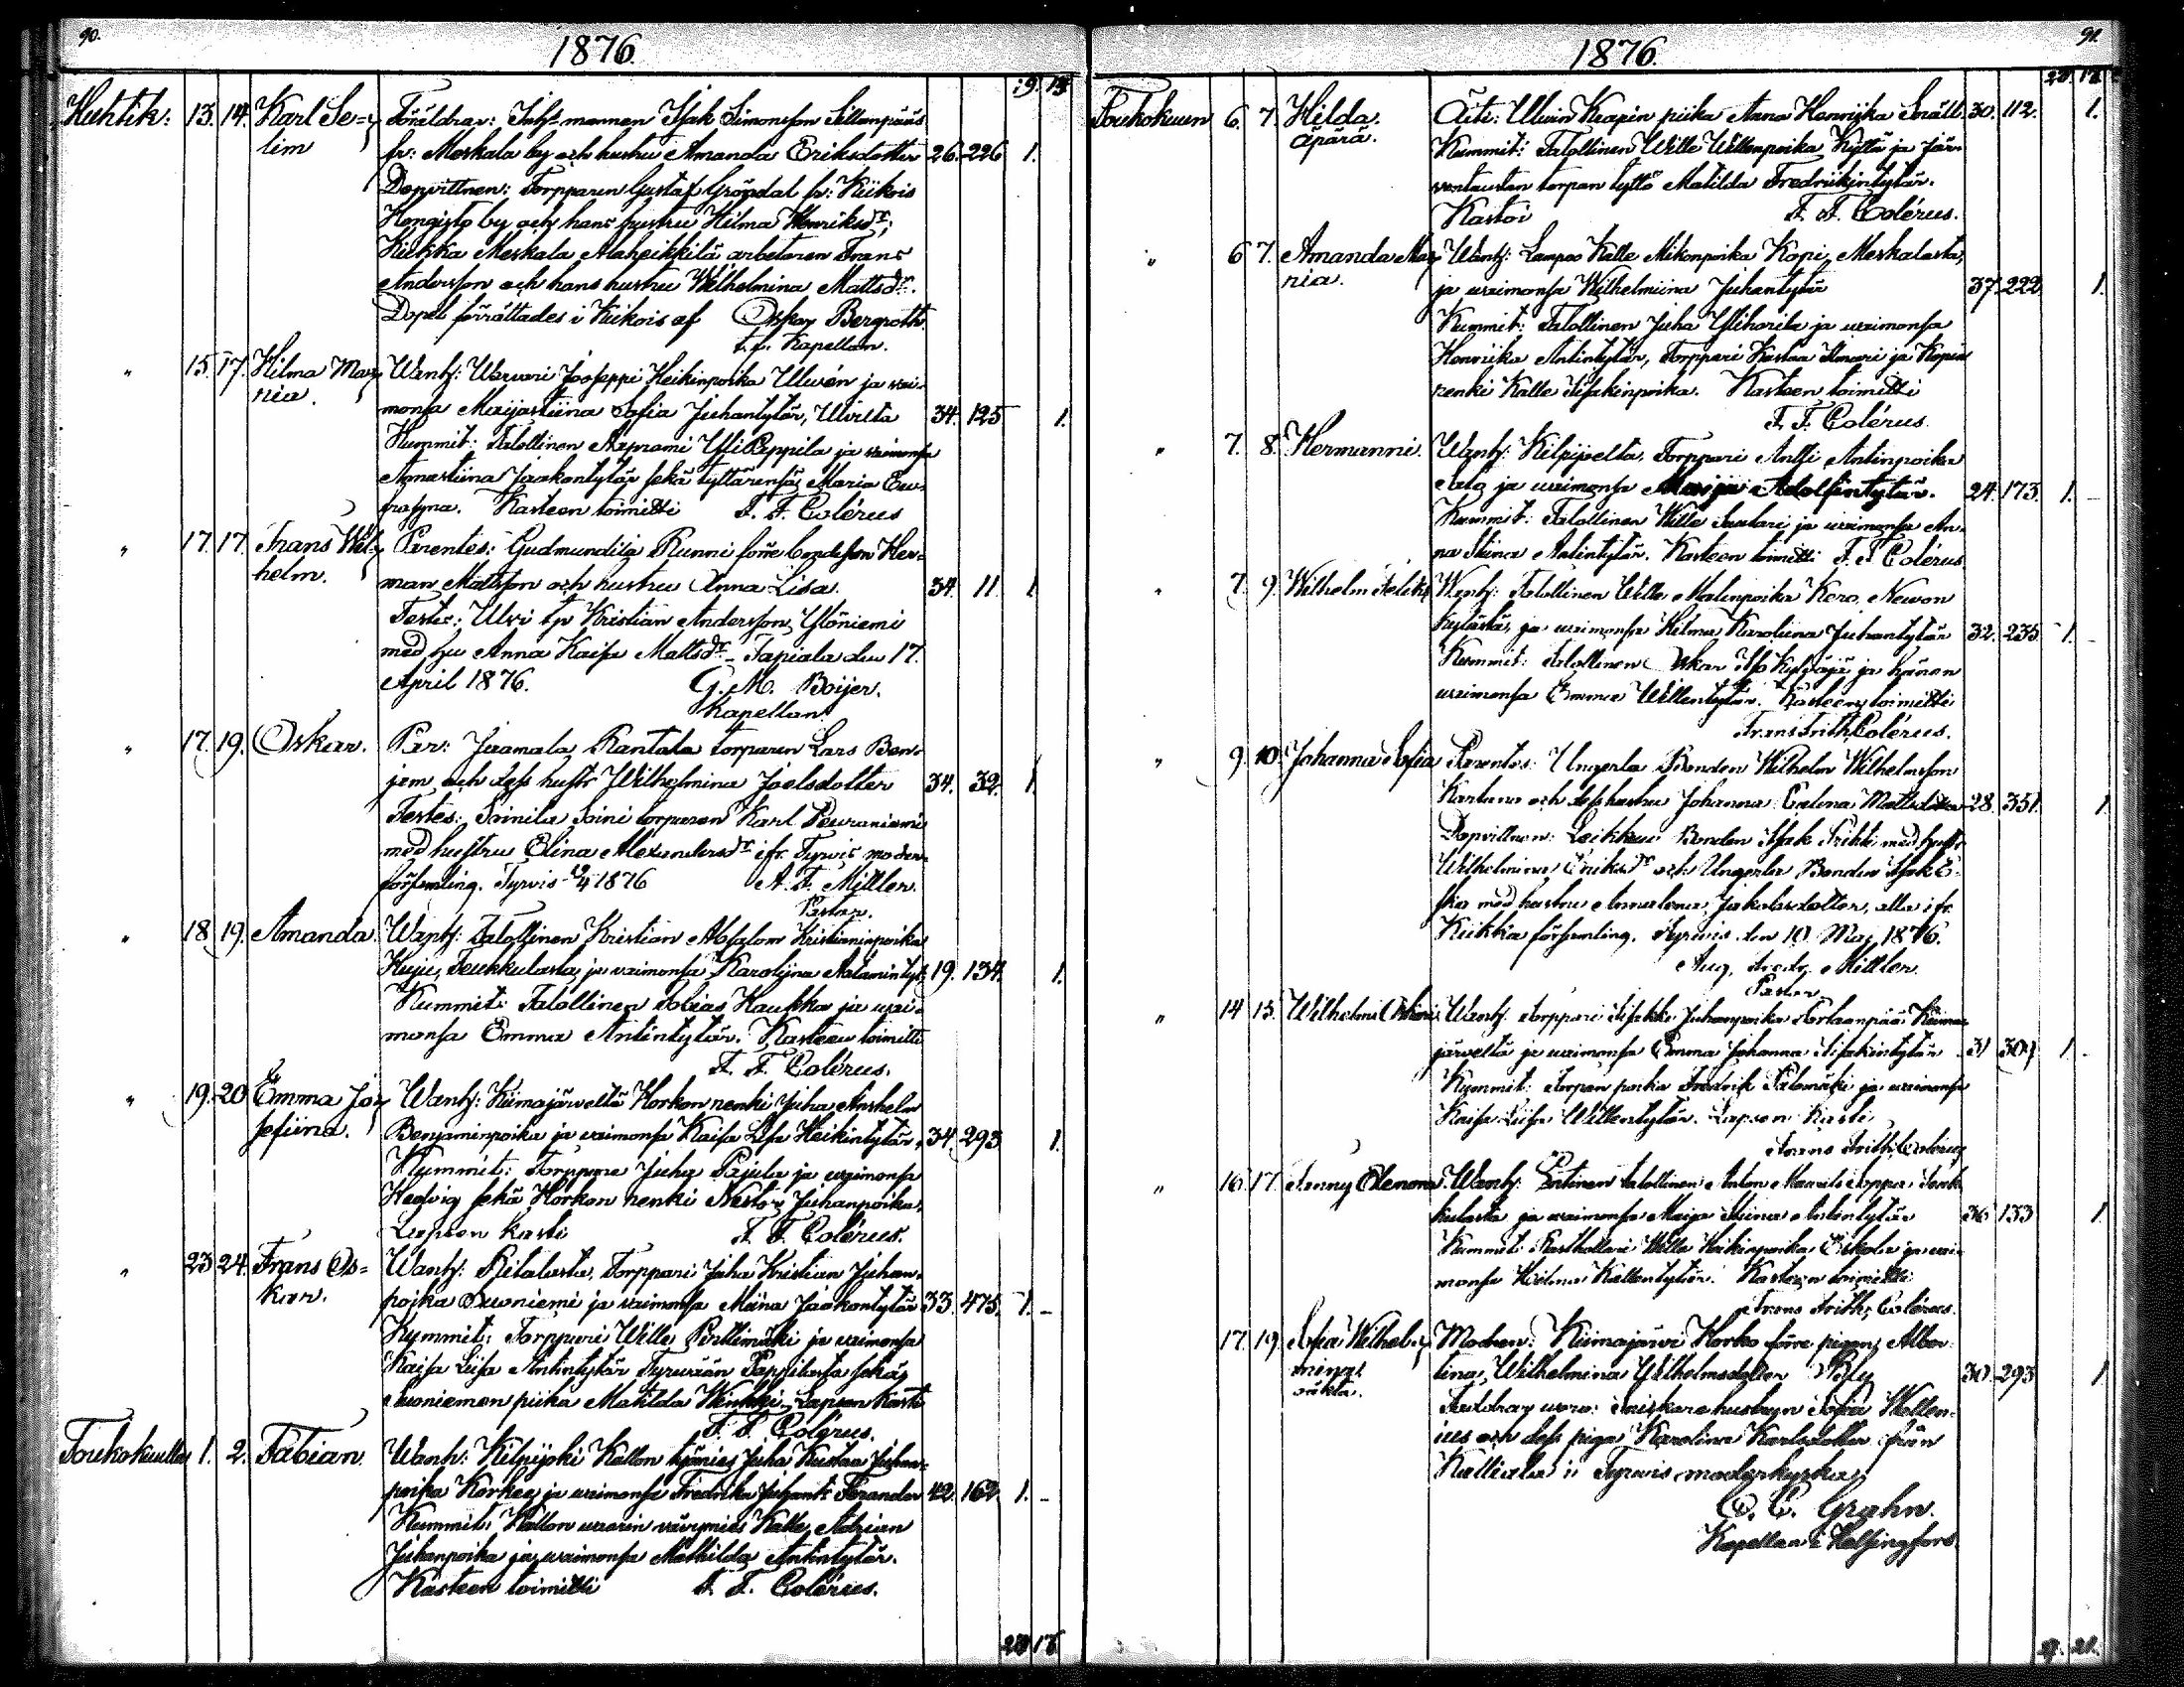 90.
1876.
19. 13
Huhtik: 13. 14. Karl Se= Föräldrar: Inhs mannen Isak Simonsson Sillanpää
lim fr: Meskala by och hustru Amanda Eriksdotter 26. 226 1.
Dopvittnen: Torpparen Gustaf Gröndal fr: Kiikois
Hongisto by och hans hustru Hilma Henriksdr;
Kiikka Meskala Alaheikkilä arbetaren Frans
Andersson och hans hustru Wilhelmina Mattsdr.
Dopet förrättades i Kiikois af Oskar Bergroth
t.f. Kapellan.
" 15. 17. Hilma Ma= Wanh: Warvari Jooseppi Heikinpoika Ulwén ja vai-
ria. monsa Maijastiina Sofia Juhantytär, Ulvilta 34. 125 1.
Kummit: Talollinen Aaprami YliPappila ja vaimonsa
Annastiina Jaakontytär sekä tyttärensä Maria Eu-
frasyna. Kasteen toimitti F. F. Colérus
" 17. 17. Frans Wil= Parentes: Gudmundila Runni förre bondeson Her-
helm. man Mattsson och hustru Anna Lisa. 34. 11 1
Testes: Ulvi tp Kristian Andersson Ylöniemi
med hu Anna Kaisa Mattsdr. Tapiala den 17.
April 1876. G. M. Boijer.
Kapellan
" 17. 19. Oskar. Par: Jaamala Rantala torparen Lars Ben-
jam och dess hustr Wilhelmina Joelsdotter 34. 32. 1.
Testes: Soinila Soini torparen Karl Peuraniemi
med hustru Elina Alexandersdr ifr. Tyrvis moder-
församling. Tyrvis 19/4 1876 A. F. Miller.
Pastor.
" 18 19. Amanda. Wanh: Talollinen Kristian Absalom Kristianinpoika
Huju, Leukkulasta ja vaimonsa Karoliina Aatamintyt, 19. 134. 1.
Kummit: Talollinen Tobias Haukka ja vai-
monsa Emma Antintytär. Kasteen toimitti
F. F. Colérus.
" 19. 20 Emma Jo= Wanh: Kiimajärveltä Horkon renki Juha Anshelm
sefiina. Benjaminpoika ja vaimonsa Kaisa Lisa Heikintytär, 34. 293 1.
Kummit: Torppare Juha Pajula ja vaimonsa
Hedvig sekä Horkon renki Nestor Juhanpoika.
Lapsen kasti F. F. Colérus.
" 23 24. Frans Os= Wanh: Ritalasta, Torppari Juha Kristian Juhan-
kar. poika Suoniemi ja vaimonsa Miina Jaakontytär 33. 475. 1. -
Kummit: Torppari Wille Perttimäki ja vaimonsa
Kaisa Liisa Antintytär Tyrvään Pappilasta sekä
Suoniemen piika Matilda Winkki. Lapsen kasti
F. F. Colérus.
Toukokuulla 1. 2. Fabian. Wanh: Kilpijoki Kallon työmies Juha Kustaa Juhan-
poika Korkea ja vaimonsa Fredrika Juhant: Forander 42. 162. 1. -
Kummit: Kallon vaarin vävymies Kalle Adrian
Juhanpoika ja vaimonsa Mathilda Antintytär.
Kasteen toimitti F. F. Colérus.
23 18
91.
1876.
23 18
Toukokuun 6. 7. Hilda. Äiti: Ulvin Krapin piika Anna Henriika Smätt. 30. 112. 1.
äpärä. Kummit: Talollinen Wille Willenpoika Kyttä ja Jär-
ventaustan torpan tyttö Matilda Fredriikintytär.
Kastoi F. F. Colérus.
" 6 7. Amanda Ma= Wanh: Lampuo Kalle Mikonpoika Kopi, Meskalasta,
ria. ja vaimonsa Wilhelmiina Juhantytär 37. 222 1.
Kummit: Talollinen Juha Ylihonla ja vaimonsa
Henriika Antintytär, Torppari Kustaa Ilmari ja Kopin
renki Kalle Iisakinpoika. Kasteen toimitti
F. F. Colérus.
" 7. 8. Hermanni. Wanh: Kilpijoelta, Torppari Antti Antinpoika
Aalo ja vaimonsa Marija Adolfintytär. 24. 173. 1. -
Kummit: Talollinen Wille Saulari ja vaimonsa An-
na Stina Antintytär. Kasteen toimitti F. F. Colérus
" 7. 9. Wilhelm Feliks Wanh: Talollinen Wille Matinpoika Kero, Newon
kylästä, ja vaimonsa Hilma Karoliina Juhantytär 32. 235. 1. -
Kummit: Talollinen Oskar Iso Kylväjä ja hänen
vaimonsa Emma Willentytär. Kasteen toimitti
Frans Frith. Colérus.
" 9. 10. Johanna Sofia Parentes: Ungerla Bonden Wilhelm Wilhelmsson
Kartano och dess hustru Johanna Carlena Mattsdotter 28. 351. 1.
Dopvittnen: Leikkuu Bonden Isak Frikki med hustr
Wilhelmina Eriksdr och Ungerla Bonden Isak E-
ska med hustru Annalena Jakobsdotter, alla ifr.
Kiikka församling. Tyrvis den 10 Maj 1876.
Aug. Fredr. Miller.
Pastor
" 14 15. Wilhelm Oskari. Wanh. Torppari Iisakki Juhanpoika Hortaanpää Kiima-
järveltä ja vaimonsa Emma Johanna Iisakintytär 31 309 1. -
Kummit: Torpan poika Fredrik Palomäki ja vaimonsa
Kaisa Liisa Willentytär. Lapsen kasti
Frans Frith. Colérus
" 16. 17. Fenny Elenora. Wanh: Entinen talollinen Anton Manuels Soppa, Leuk-
kulasta ja vaimonsa Maija Stiina Antintytär 36 133 1.
Kummit: Rusthollari Wille Heikinpoika Eskola ja vai-
monsa Hilma Kallentytär. Kasteen toimitti
Frans Frith. Colérus.
17. 19. Sofia Wilhel= Modren: Kiimajärvi Horko förre pigan, Alber-
mina. tina Wilhelmina Wilhelmsdotter 30. 293 1.
oäkta. Faddrar woro: Snickare hustrun Sofia Wellen-
ius och dess piga Karolina Karlsdotter från
Kalliala i Tyrvis moderkyrka
C. E. Grahn.
Kapellan i Helsingfors
27. 21.